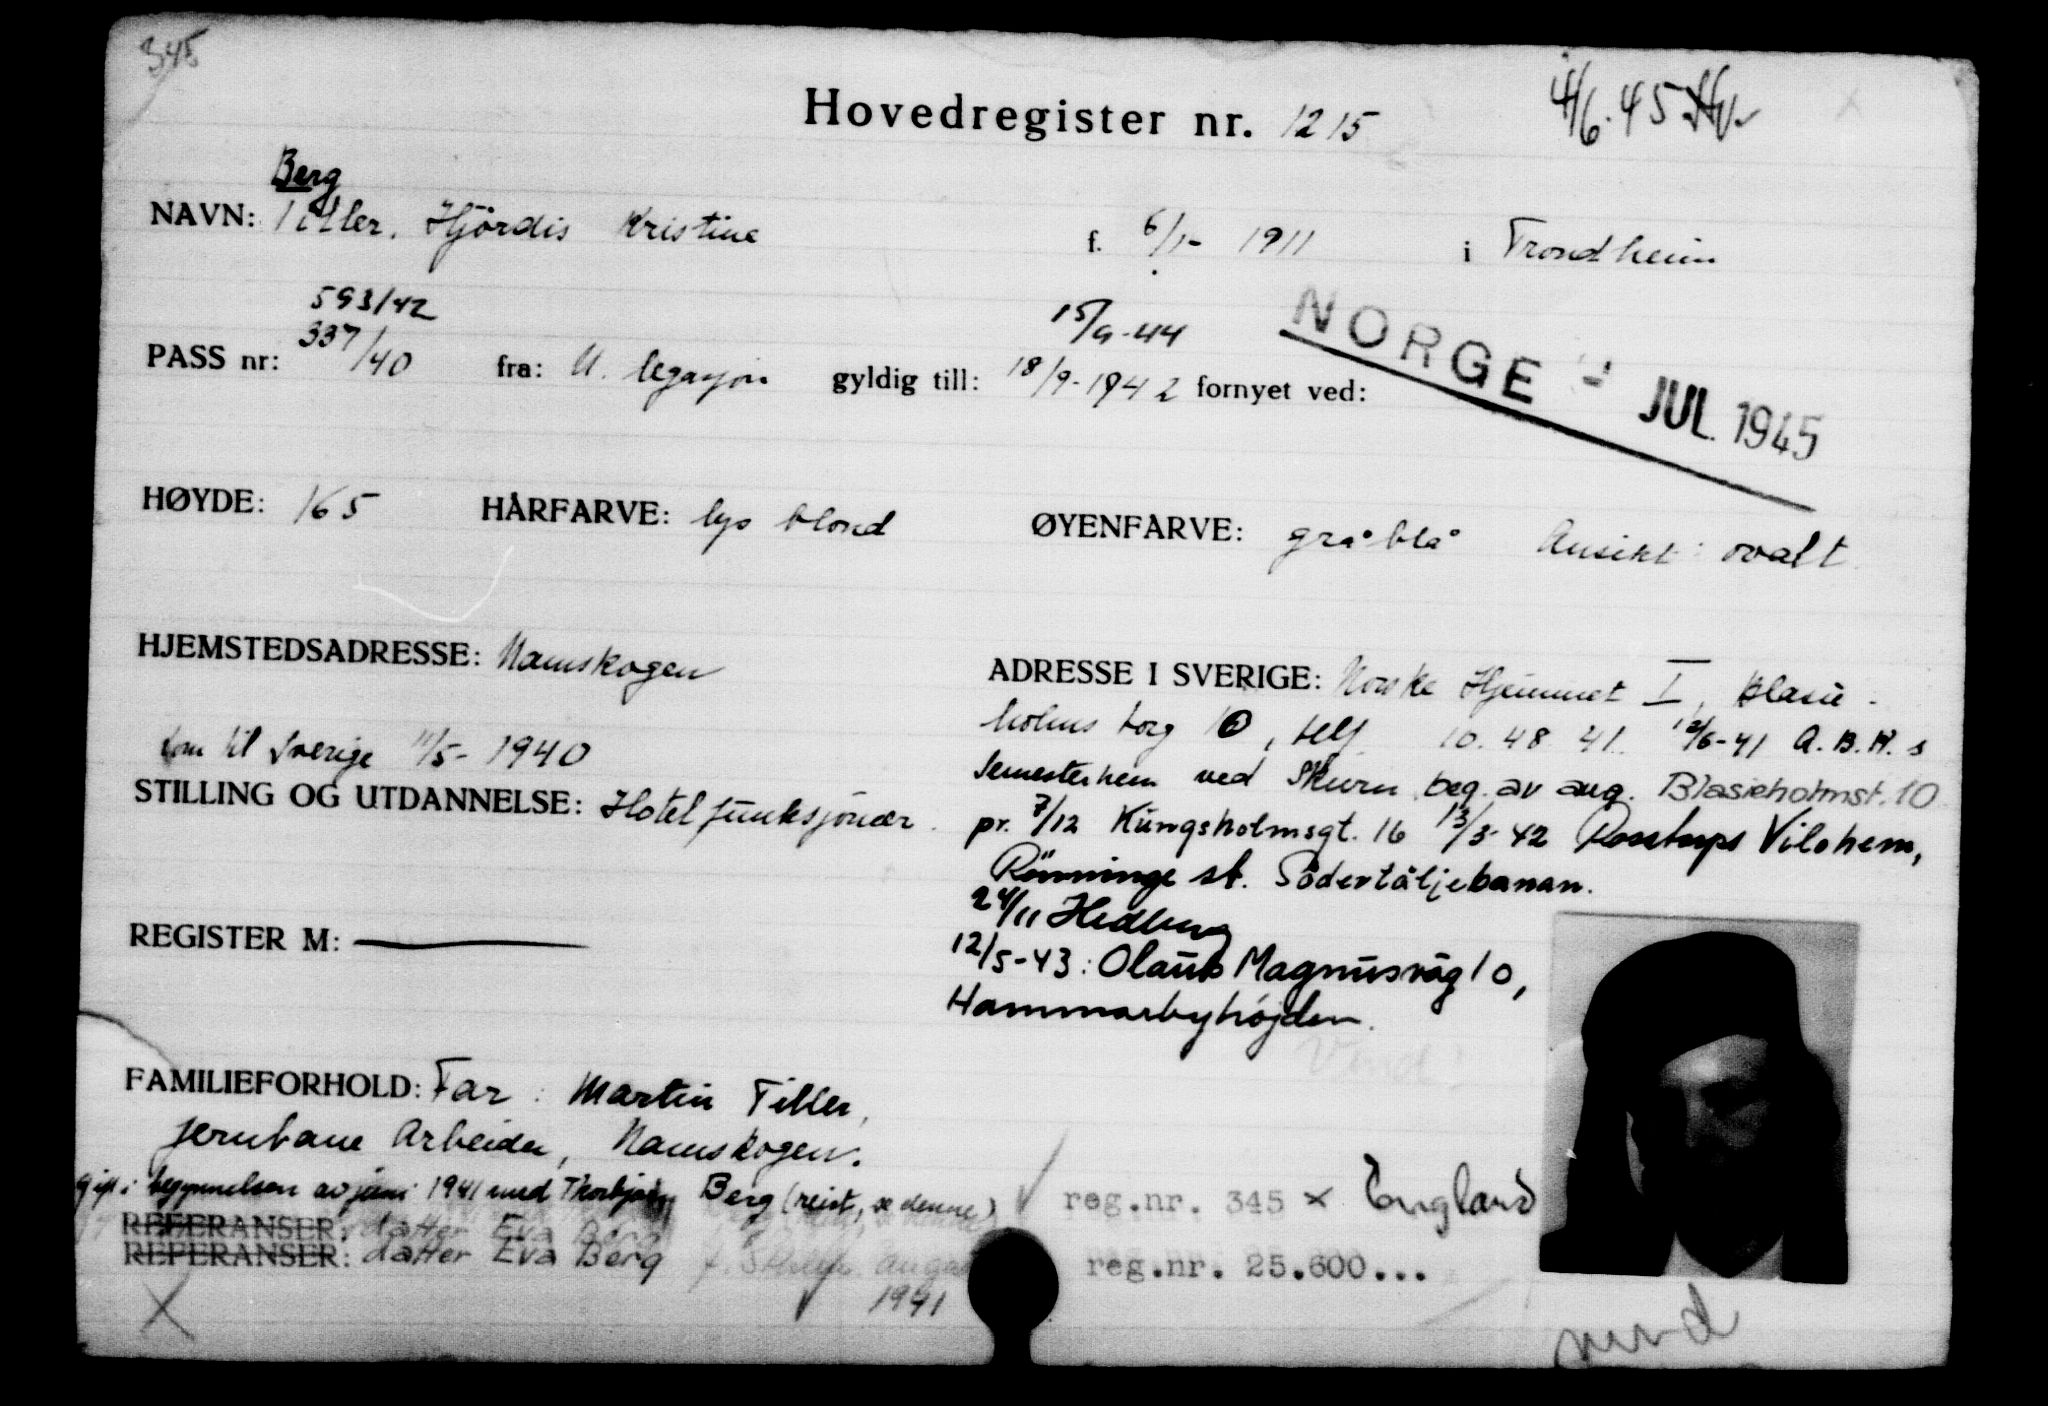 345
Hovedregister nr. 1215
4/6.45
Berg
NAVN: Tiller, Hjördis Kristine f. 6/1- 1911 i Trondheim
593/42
15/9-44
PASS nr: 337/40 fra: N. legasjon gyldig till: 18/9-1942 fornyet ved:
NORGE - JUL. 1945
HØYDE: 165 HÅRFARVE: lys blond ØYENFARVE: gråblå Ansikt: ovalt
HJEMSTEDSADRESSE: Namskogen
kom til Sverige 11/5- 1940
STILLING OG UTDANNELSE: Hotelfunksjonær.
REGISTER M:
ADRESSE I SVERIGE: Norske Hjemmet I, Blasie-
holms torg 10, telf. 10.48 41. 12/6-41 A.B.A.s
Semesterhem ved Skuru beg. av aug. Blasieholmst. 10
pr. 7/12 Kungsholmsgt. 16 13/3-42 Vilohem,
Rönninge st. Södertäljebanan.
24/11 Hedberg
12/5-43: Olaus Magnusväg 10,
Hammarbyhöjden.
Vend!
FAMILIEFORHOLD: Far: Martin Tiller,
jernbane Arbeider, Namskogen.
gift i begynnelsen av juni 1941 med Thorbjørn Berg (reist, se denne)
REFERANSER: datter Eva Berg
REFERANSER: datter Eva Berg f. august
1941
reg.nr. 345 x England
reg.nr. 25.600...
vend